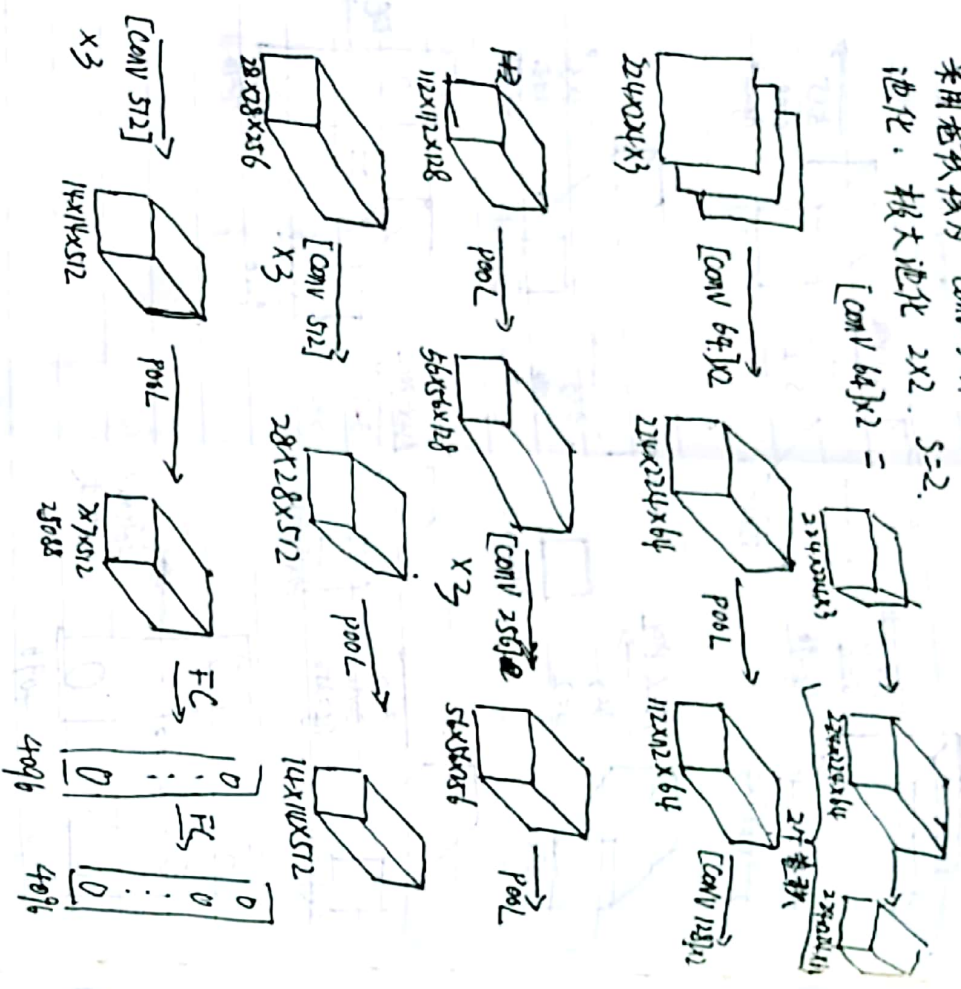 池化：极大池化 2×2. S=2.
[CONV 64]×2 =
224×224×3
224×224×64
2个卷积
224×224×3
[CONV 64]×2
224×224×64
POOL
112×112×64
[CONV 128]×2
112
112×112×128
POOL
56×56×128
[CONV 256]
×3
56×56×256
POOL
28×28×256
[CONV 512]
×3
28×28×512
POOL
14×14×512
[CONV 512]
×3
14×14×512
POOL
7×7×512
25088
FC
4096
FC
4096